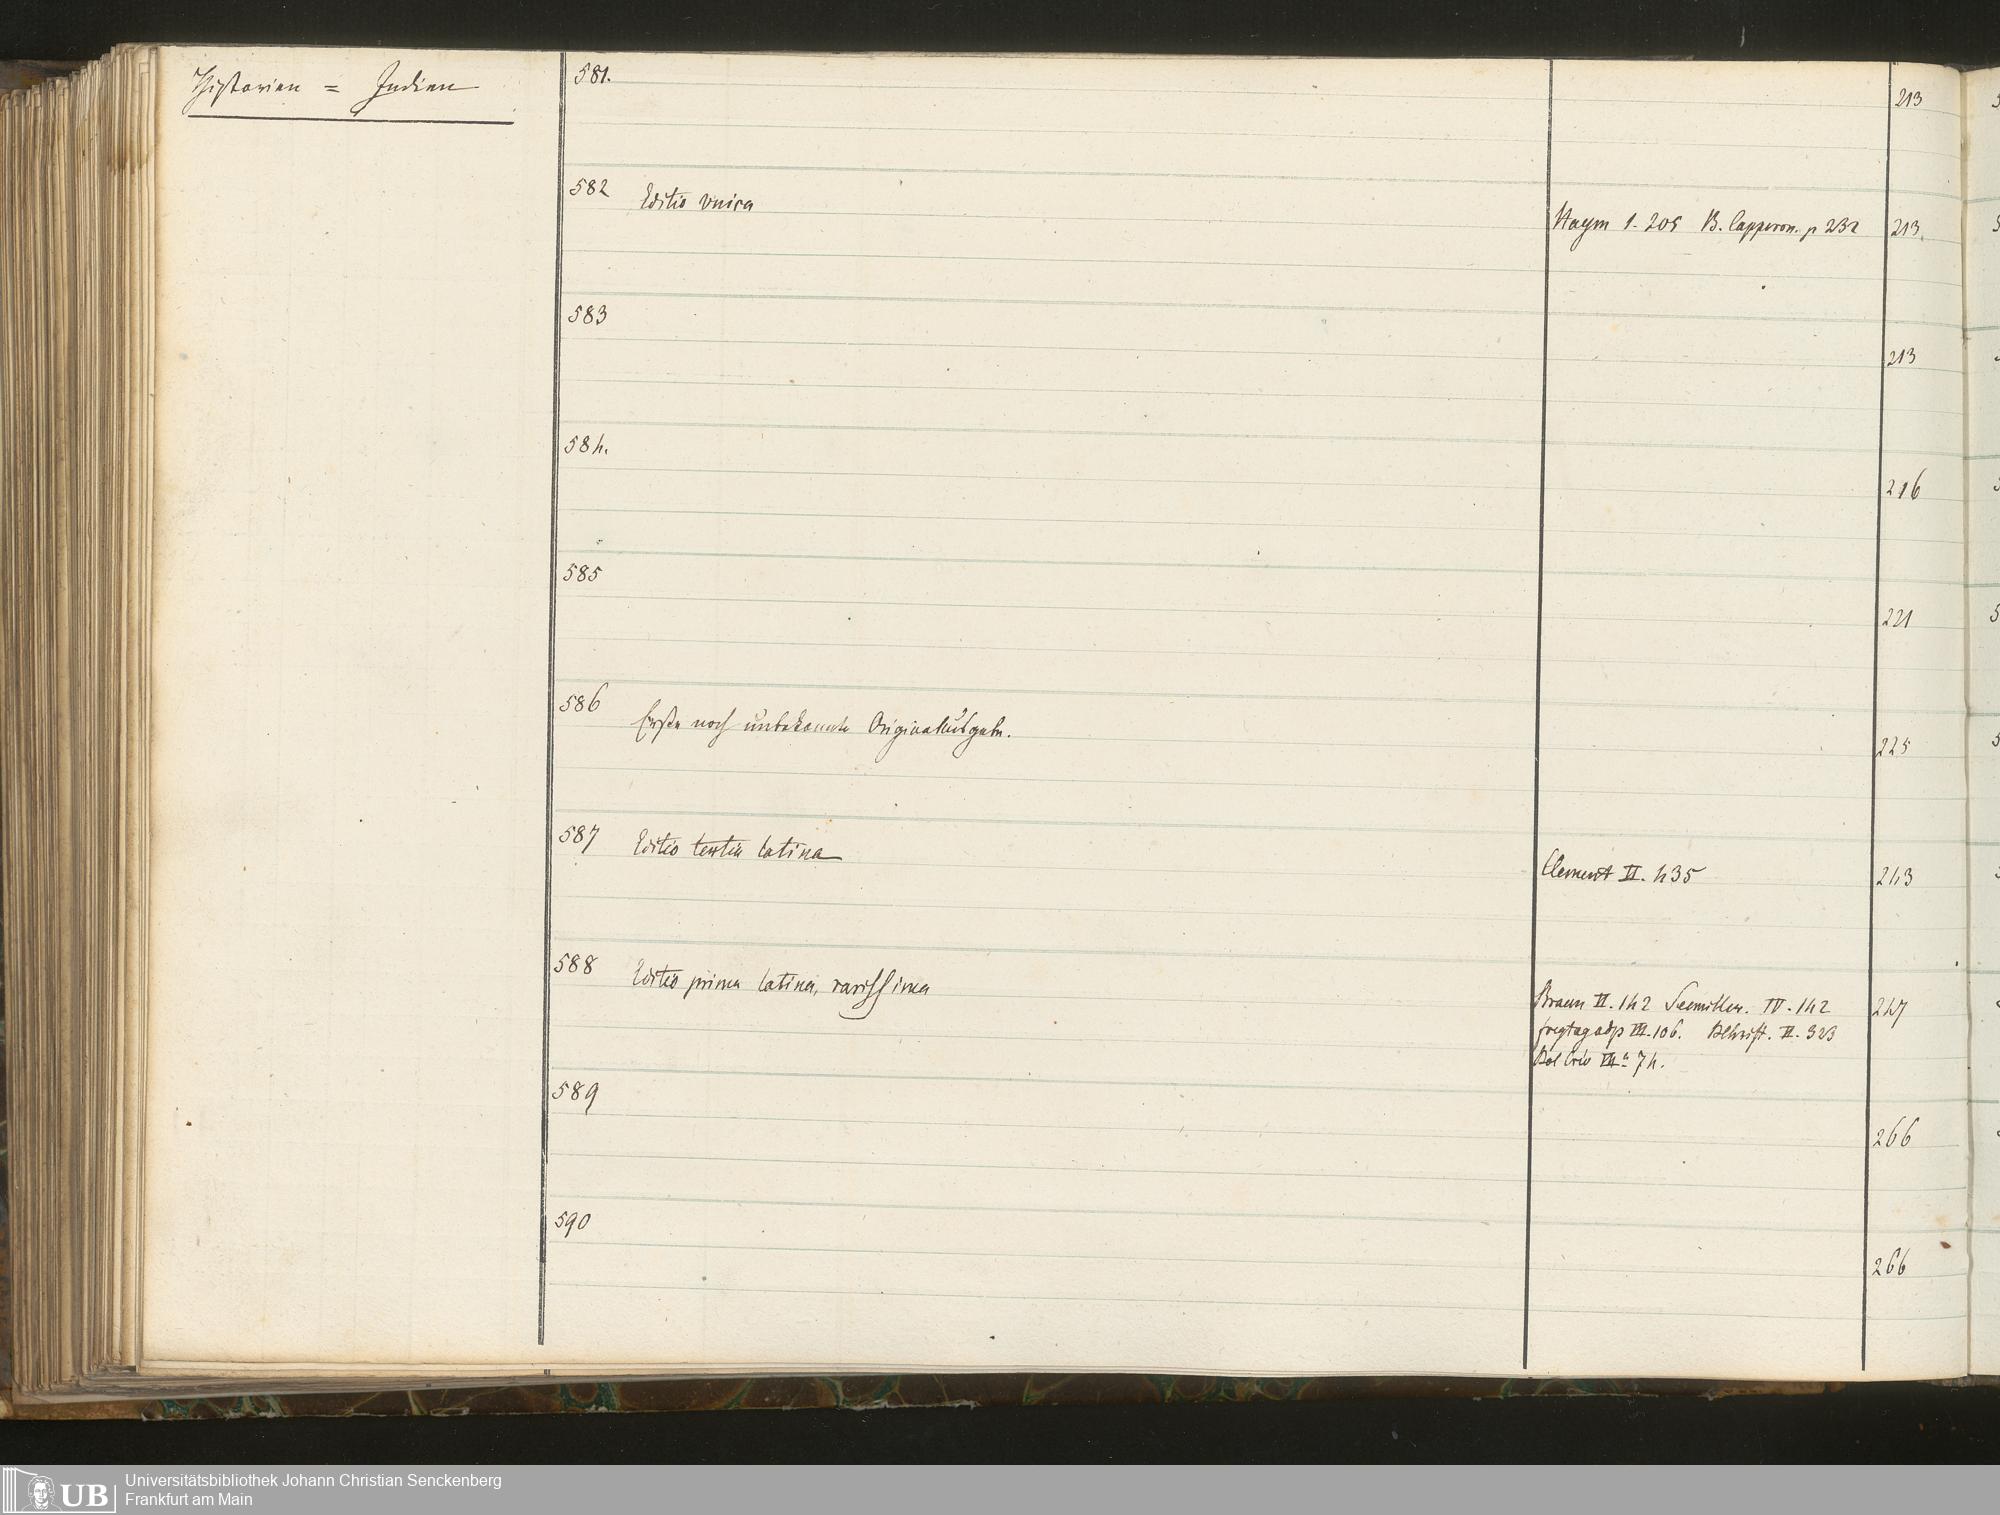 Historien = Indien
581.
213
582 Editio vnica
Haym 1. 205 B. Capperon. p 232 213
583
213
584.
216
585
221
586 Erste noch unbekannte Originalausgabe.
225
587 Editio tertia latina
Clement VI. 435 243
588 Editio prima latina, rarissima
Braun II. 142 Seemiller. IV. 142 247
freytag adp III. 106. II. 323
Bel Crev 74.
589
266
590
266
Universitätsbibliothek Johann Christian Senckenberg
Frankfurt am Main
UB